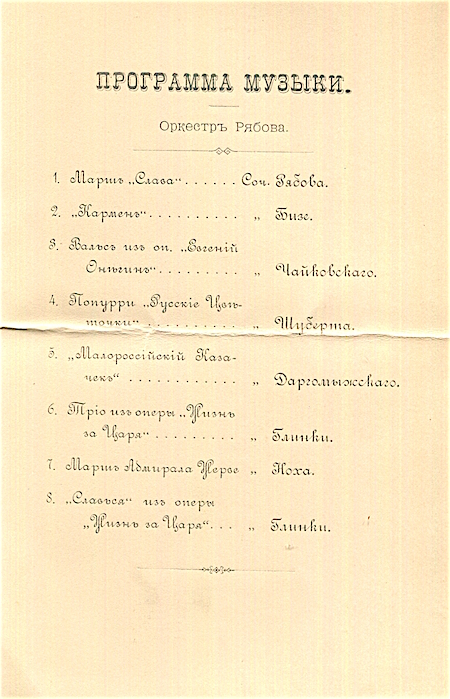 ПРОГРАММА МУЗЫКИ.
Оркестръ Рябова.
1. Маршъ „Слава“ . . . . . . Соч. Рябова.
2. „Карменъ“ . . . . . . . . . . „ Бизе.
3. Вальсъ из оп. „Евгеній
Онѣгинъ“ . . . . . . . . . „ Чайковскаго.
4. Попурри „Русскіе Цвѣ-
точки“ . . . . . . . . . . „ Шуберта.
5. „Малороссійскій Каза-
чекъ“ . . . . . . . . . . . . „ Даргомыжскаго.
6. Тріо изъ оперы „Жизнь
за Царя“ . . . . . . . . . „ Глинки.
7. Маршъ Адмирала Жерве „ Коха.
8. „Славься“ изъ оперы
„Жизнь за Царя“. . . „ Глинки.